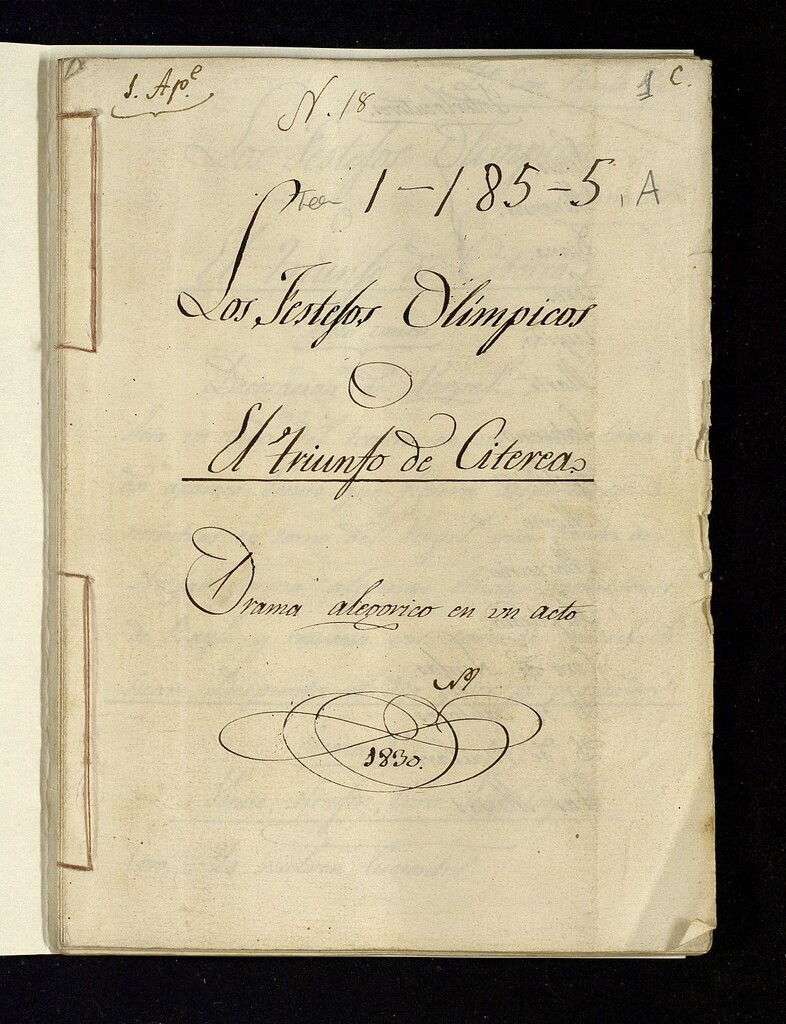 1. Ap.e
N. 18
1 C.
Tea 1-185-5, A
Los Festejos Olimpicos
O
El triunfo de Citerea
Drama alegorico en un acto
1830.